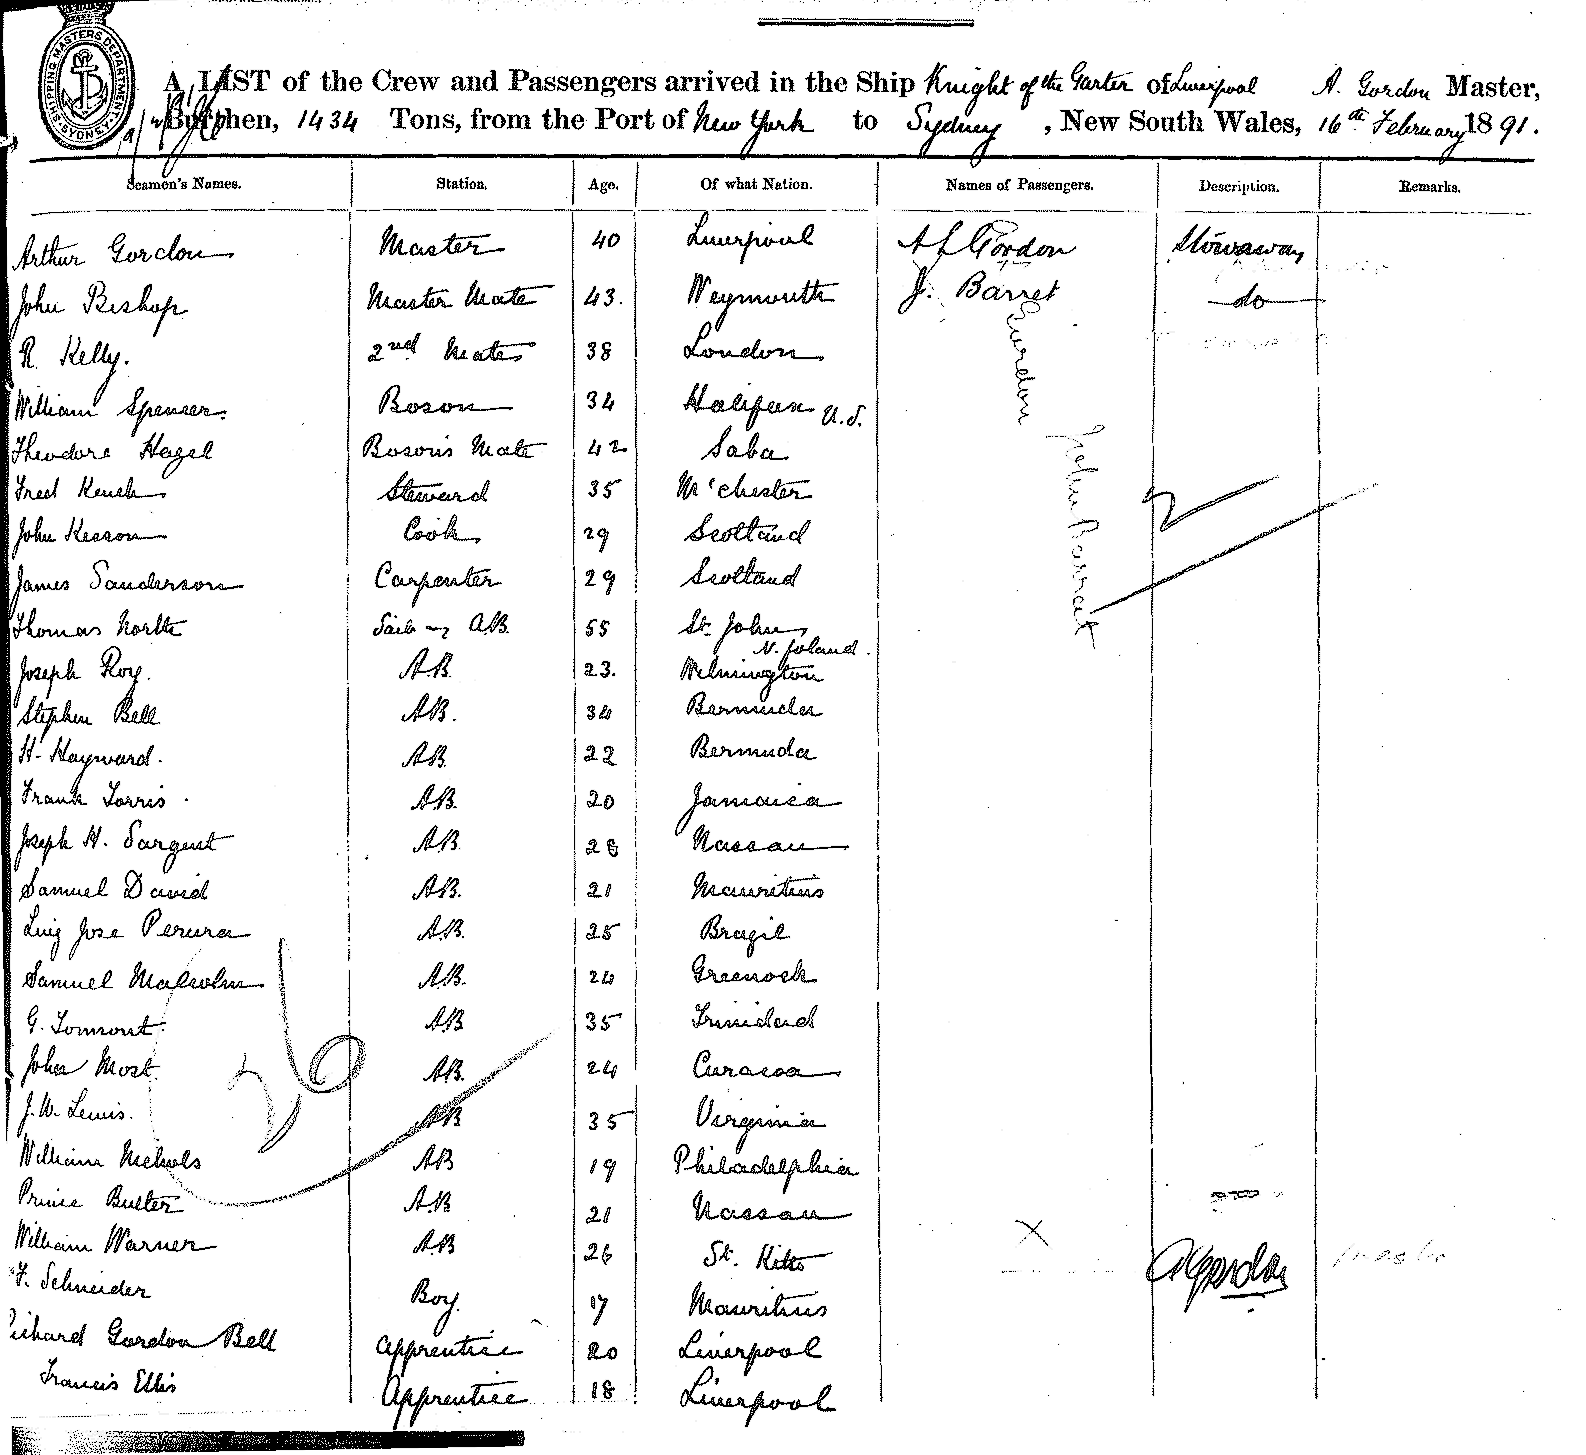 SHIPPING MASTERS DEPARTMENT SYDNEY
A LIST of the Crew and Passengers arrived in the Ship Knight of the Garter of Liverpool A. Gordon Master,
Burthen, 1434 Tons, from the Port of New York to Sydney, New South Wales, 16th February 1891.
Seamen's Names. Station. Age. Of what Nation. Names of Passengers. Description. Remarks.
Arthur Gordon Master 40 Liverpool A L Gordon Stowaway
John Bishop Master Mate 43. Weymouth J. Barret do
R. Kelly. 2nd Mate 38 London
William Spenser. Boson 34 Halifax U.S.
Theodore Hagel Boson's Mate 42 Saba
Fred Keuch Steward 35 M'chester
John Kesson Cook 29 Scotland
James Sanderson Carpenter 29 Scotland
Thomas North A.B. 55 St. John
N. foland.
Joseph Roy. A.B. 23. Wilmington
Stephen Bell A.B. 34 Bermuda
H. Hayward. A.B. 22 Bermuda
Frank Torris A.B. 20 Jamaica
Joseph H. Sargent A.B. 28 Nassau
Samuel David A.B. 21 Mauritius
Luiz Jose Perura A.B. 25 Brazil
Samuel Malcolm A.B. 24 Greenock
G. Tomont A.B. 35 Trinidad
John Most A.B. 24 Curacoa
J. W. Lewis. A.B. 35 Virginia
William Nichols A.B. 19 Philadelphia
Prince Butler A.B. 21 Nassau
William Warner A.B. 26 St. Kitts
F. Schneider Boy. 17 Mauritius
Richard Gordon Bell Apprentice 20 Liverpool
Francis Ellis Apprentice 18 Liverpool
Gordon
John Barrat
2
26
X
A Gordon Master